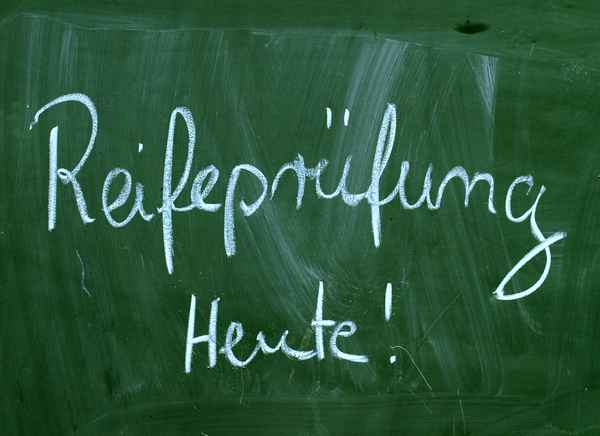 Reifeprüfung
Heute!